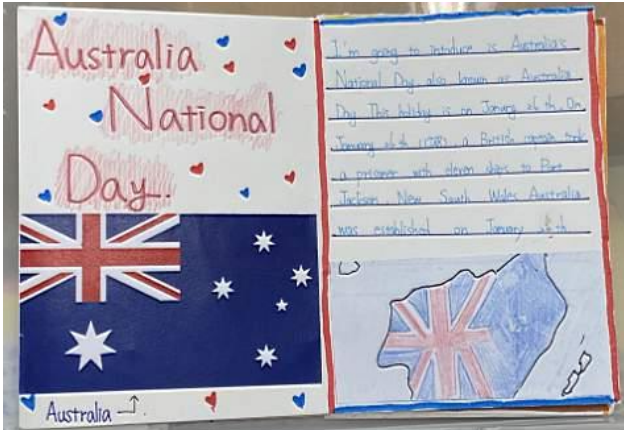 Australia
National
Day.
Australia
I'm going to introduce is Australia's
National Day also known as Australia
Day. This holiday is on Janary 26th. On
Janauary 26th a British
a prisoner with eleven ships to Port
Jackson, New South Wales Australia
was established on Janary 26th